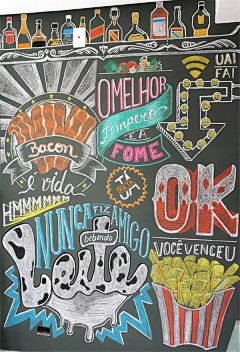 UAI
FAI
O MELHOR
tempero
é a
FOME
Bacon
é vida
HMMMMMMM
OK
VOCÊ VENCEU
NUNCA FIZ AMIGO
bebendo
Leite